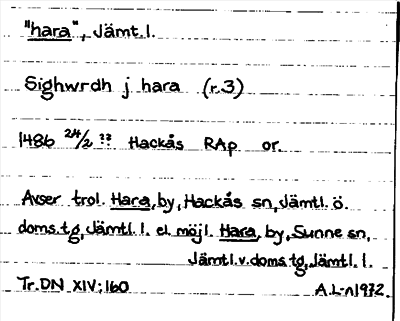 "hara", Jämt.l.
Sighwrdh j hara (r.3)
1486 24/2 ?? Hackås RAp or.
Avser trol. Hara, by, Hackås sn, Jämtl. ö.
doms.tg, Jämtl. l. el. möjl. Hara, by, Sunne sn,
Jämtl.v.doms.tg, Jämtl. l.
Tr. DN XIV:160 A.L-n 1972.